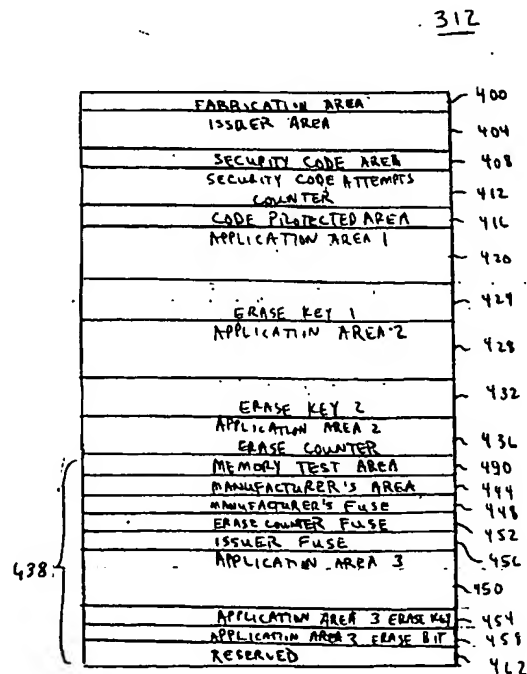 312
FABRICATION AREA 400
ISSUER AREA 404
SECURITY CODE AREA 408
SECURITY CODE ATTEMPTS
COUNTER 412
CODE PROTECTED AREA 416
APPLICATION AREA 1 420
ERASE KEY 1 424
APPLICATION AREA 2 428
ERASE KEY 2 432
APPLICATION AREA 2
ERASE COUNTER 436
MEMORY TEST AREA 490
MANUFACTURER'S AREA 444
MANUFACTURER'S FUSE 448
ERASE COUNTER FUSE 452
ISSUER FUSE 456
438
APPLICATION AREA 3 450
APPLICATION AREA 3 ERASE KEY 454
APPLICATION AREA 3 ERASE BIT 458
RESERVED 462